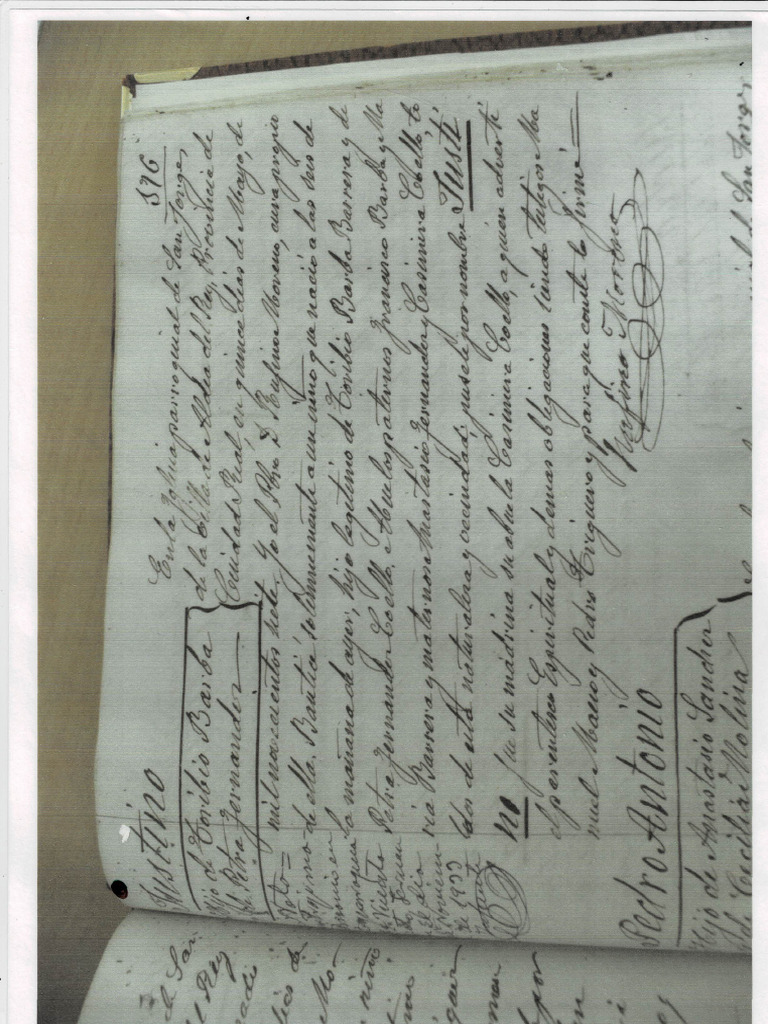 596
Justino
Hijo de Toribio Barba
de Petra Fernandez
En la Yglesia parroquial de San Jorge,
de la Villa de Aldea del Rey, Provincia de
Ciudad Real en quince dias de Mayo, de
mil novecientos siete. Yo el Pbro. D. Rufino Moreno, cura propio
de ella. Bauticé solemnemente a un niño que nació a las seis de
la mañana de ayer, hijo legítimo de Toribio Barba Barrera y de
Petra Fernandez Coello. Abuelos paternos Francisco Barba y Ma
ria Barrera y maternos Anastasio Fernandez y Casimira Coello, to
dos de esta naturaleza y vecindad; pusele por nombre Justi
no fue su madrina su abuela Casimira Coello, a quien adverti
el parentesco Espiritual y demas obligaciones siendo testigos Ma
nuel Macio y Pedro Trigueros y para que conste lo firmé
Rufino Moreno
Nota =
en
parroquia
Vicente
El dia
de 1933
Pedro Antonio
Hijo de Anastasio Sanchez
de Cecilia Molina
de San Jorge
San
Rey
de
Mo-
niño
por